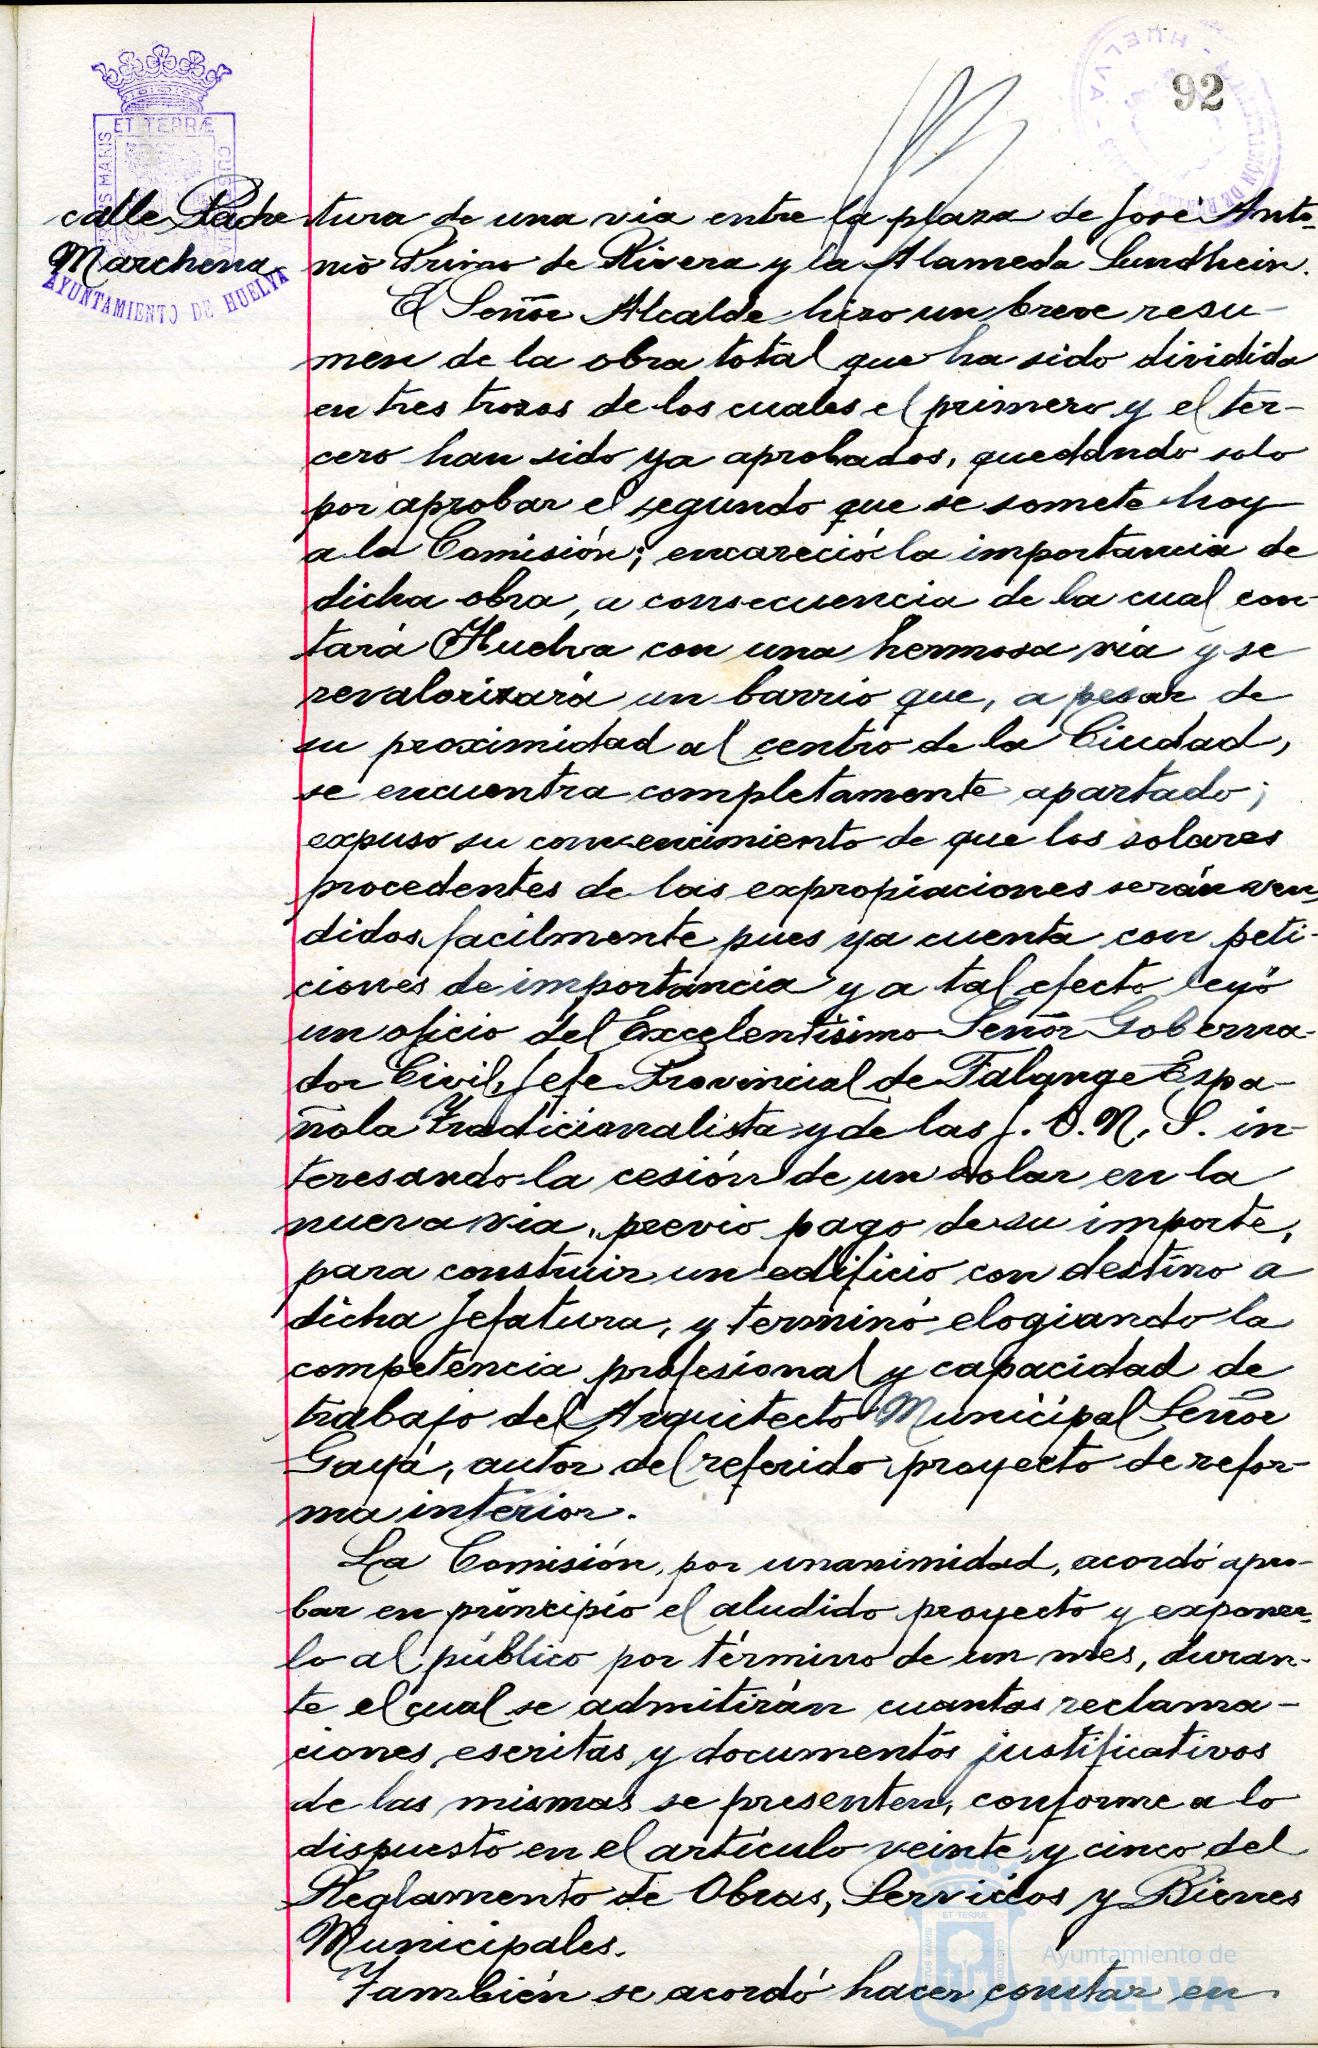 92
ET TERRÆ
AYUNTAMIENTO DE HUELVA
calle Padre
Marchena
tura de una via entre la plaza de José Anto-
nio Primo de Rivera y la Alameda Sundhein.
El Señor Alcalde hizo un breve resu-
men de la obra total que ha sido dividida
en tres trozos de los cuales el primero y el ter-
cero han sido ya aprobados, quedando solo
por aprobar el segundo que se somete hoy
a la Comisión; encareció la importancia de
dicha obra, a consecuencia de la cual con-
tará Huelva con una hermosa via y se
revalorizará un barrio que, a pesar de
su proximidad al centro de la Ciudad,
se encuentra completamente apartado;
expuso su convencimiento de que los solares
procedentes de las expropiaciones serán ven-
didos facilmente pues ya cuenta con peti-
ciones de importancia y a tal efecto leyó
un oficio del Excelentísimo Señor Goberna-
dor Civil, Jefe Provincial de Falange Espa-
ñola Tradicionalista y de las J. O. N. S. in-
teresando la cesión de un solar en la
nueva via, previo pago de su importe,
para construir un edificio con destino a
dicha Jefatura, y terminó elogiando la
competencia profesional y capacidad de
trabajo del Arquitecto Municipal Señor
Gayá, autor del referido proyecto de refor-
ma interior.
La Comisión, por unanimidad, acordó apro-
bar en principio el aludido proyecto y exponer-
lo al público por término de un mes, duran-
te el cual se admitirán cuantas reclama-
ciones escritas y documentos justificativos
de las mismas se presenten, conforme a lo
dispuesto en el artículo veinte y cinco del
Reglamento de Obras, Servicios y Bienes
Municipales.
También se acordó hacer constar en
Ayuntamiento de
HUELVA